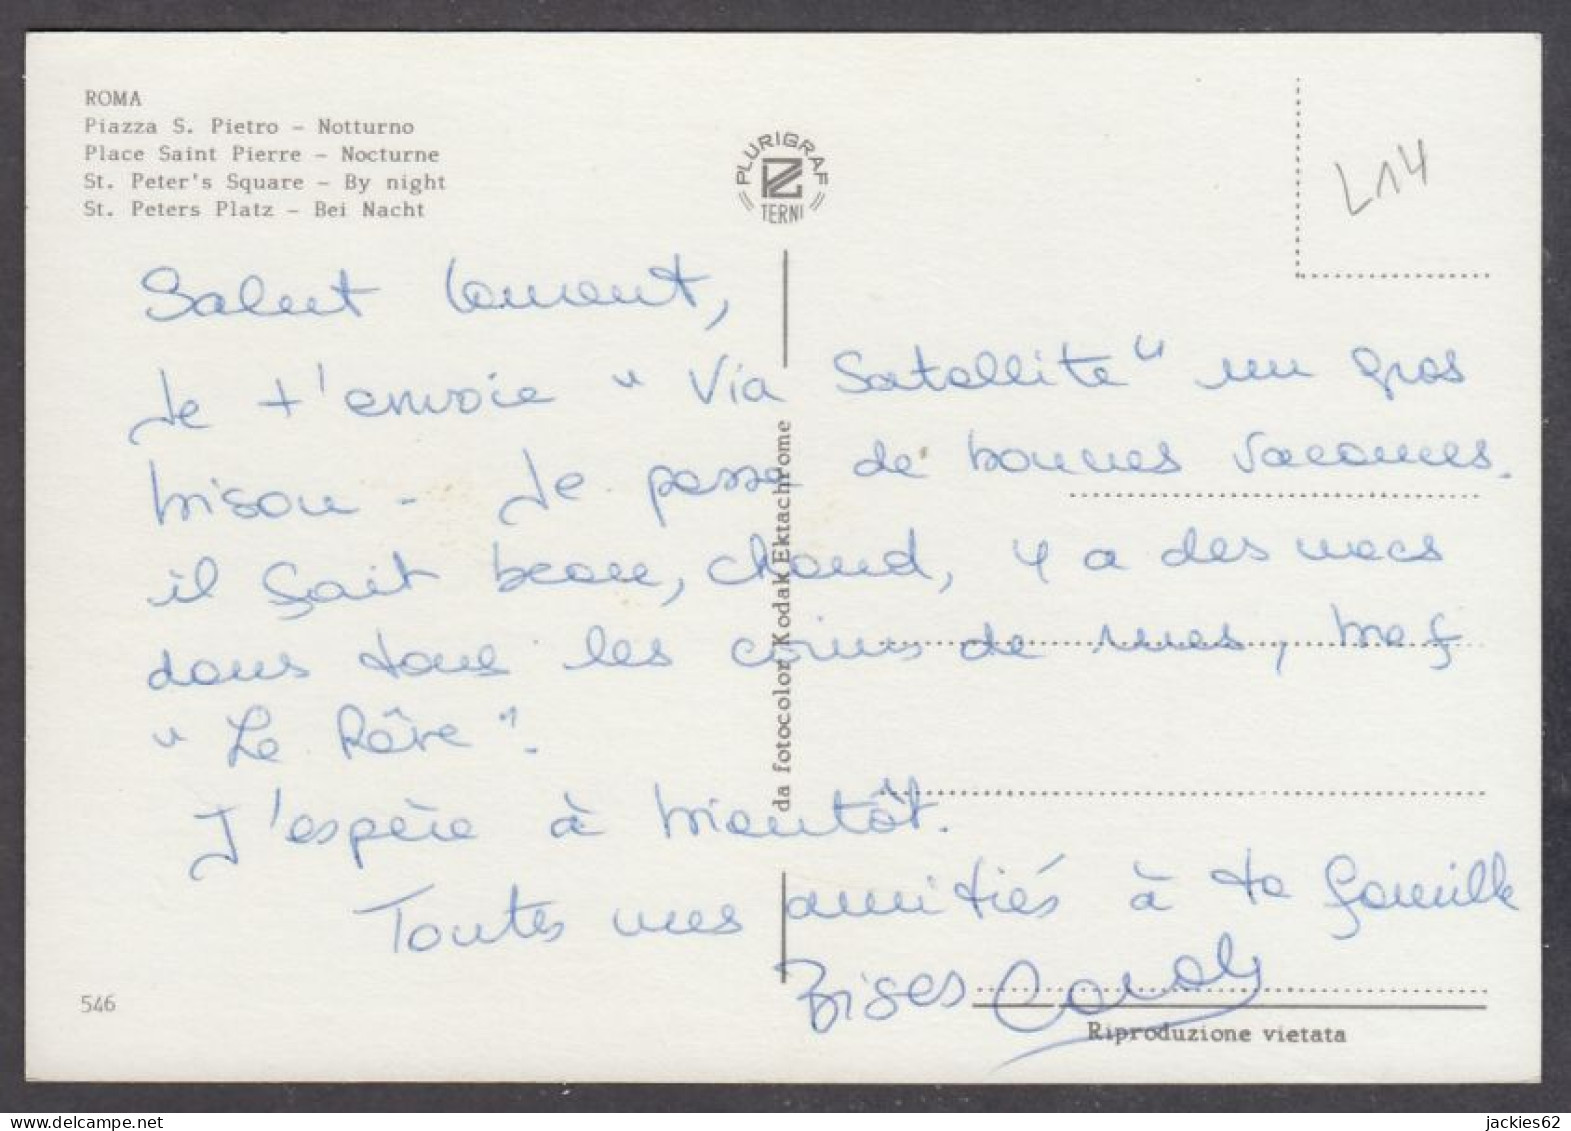 ROMA
Piazza S. Pietro – Notturno
Place Saint Pierre – Nocturne
St. Peter's Square – By night
St. Peters Platz – Bei Nacht
PLURIGRAF
TERNI
L14
Salut
Je t'envoie "Via Satellite" un gros
bison - Je passe de bonnes vacances.
il fait beau, chaud, y a des mecs
dans tous les coins de rues, bref
"Le Rêve".
J'espère à bientôt.
Toutes mes amitiés à ta famille
Bises
da fotocolor Kodak Ektachrome
546
Riproduzione vietata
www.delcampe.net
jackies62